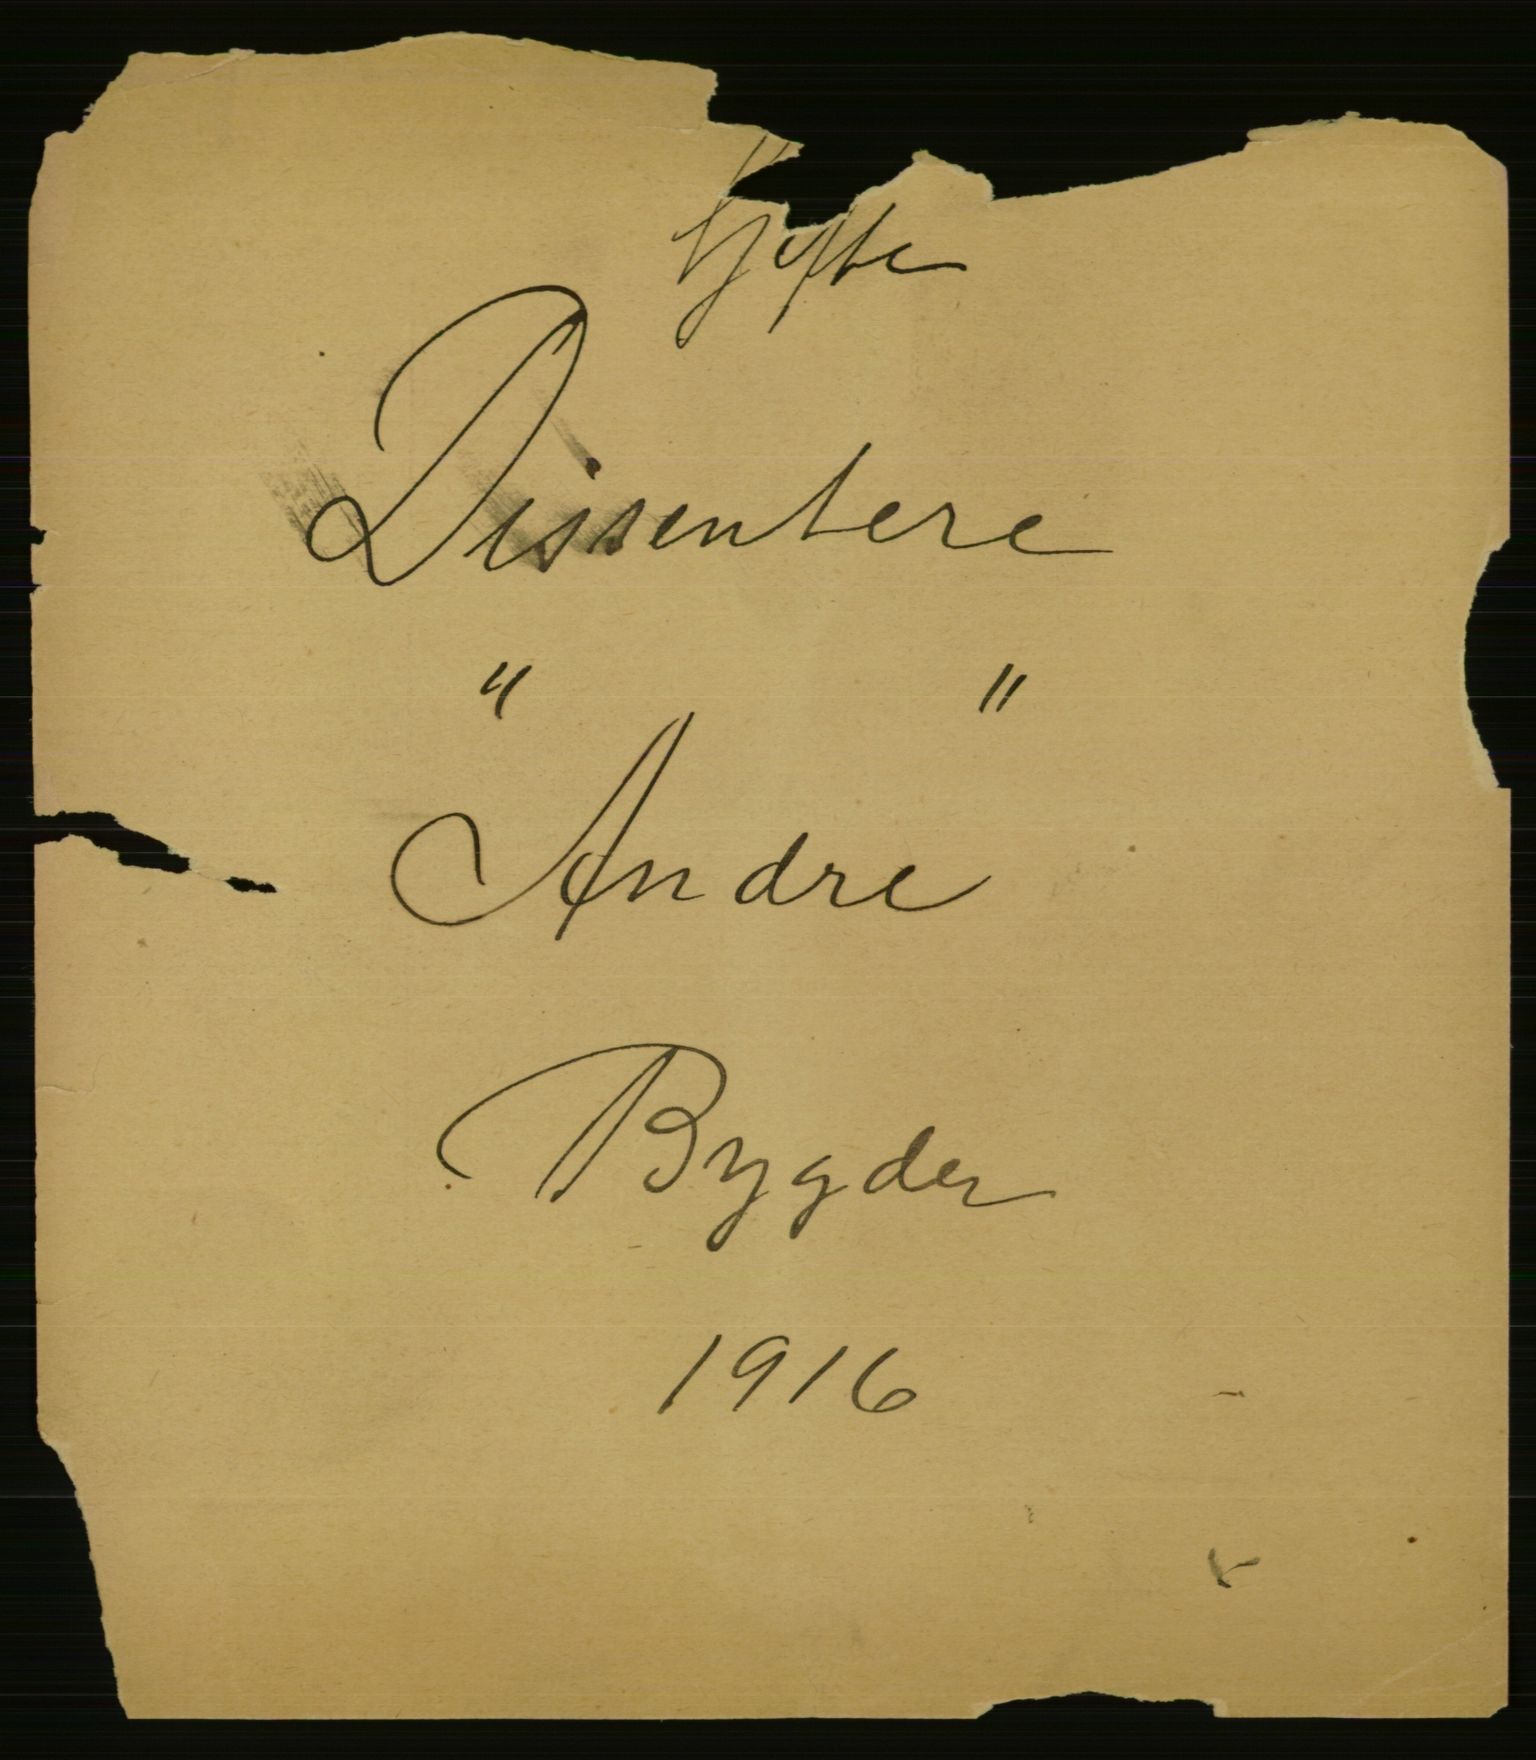 Gifte
Dissentere
" "
Andre
Bygder
1916